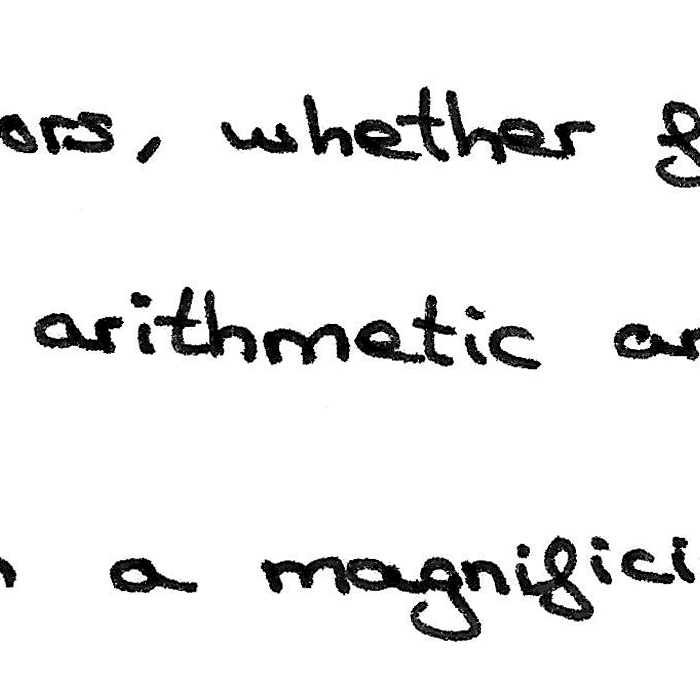 ors, whether f
arithmetic ar
a magnifici